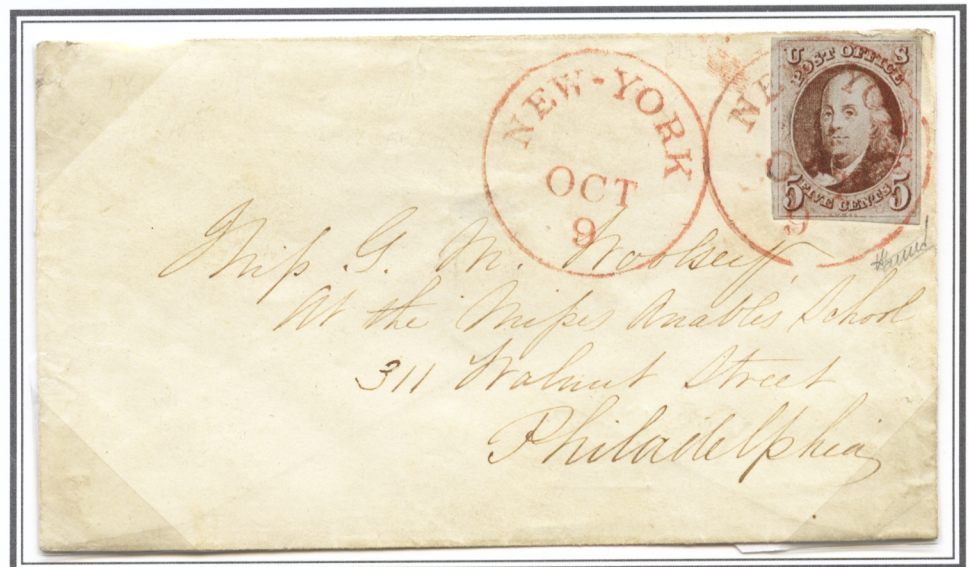 NEW-YORK
OCT
9
NE YO
O
9
U S
POST OFFICE
5 FIVE CENTS 5
Miss G. M. Woolsey
At the Misses Anable's School
311 Walnut Street
Philadelphia